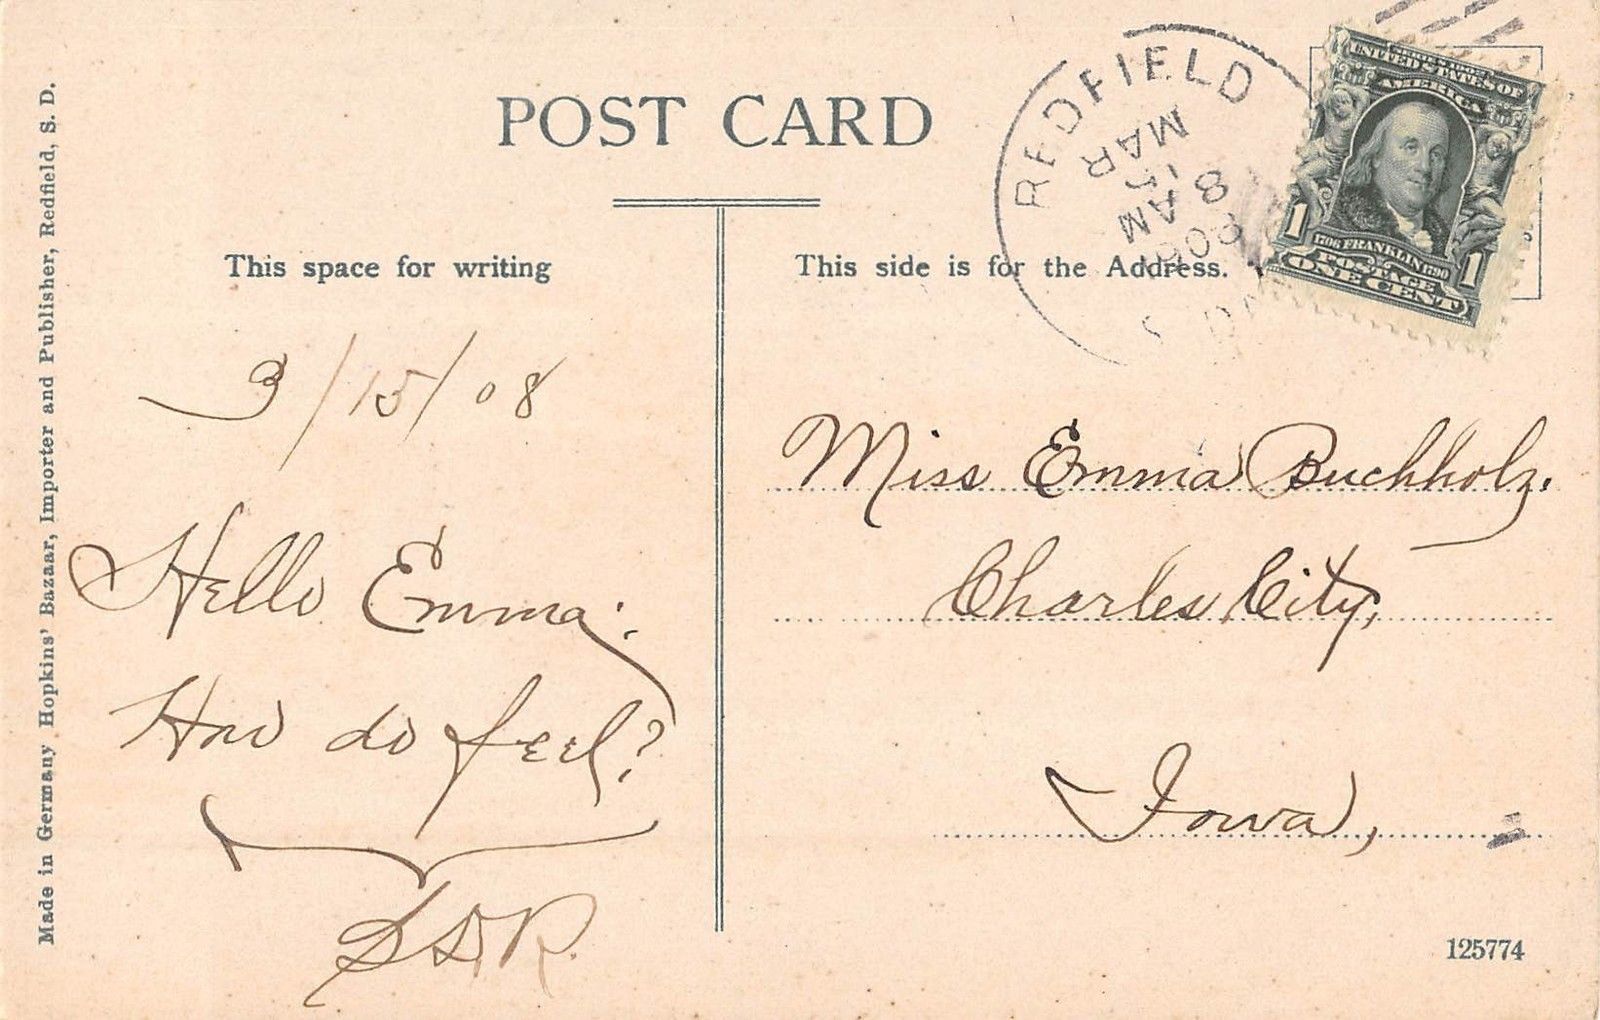 Made in Germany Hopkins' Bazaar, Importer and Publisher, Redfield, S. D.
POST CARD
This space for writing
This side is for the Address.
REDFIELD
MAR
15
8 AM
1908
UNITED STATES OF
AMERICA
1706 FRANKLIN 1790
1 POSTAGE 1
ONE CENT
3/15/08
Hello Emma:
How do feel?
Miss Emma Buchholz.
Charles City,
Iowa,
125774